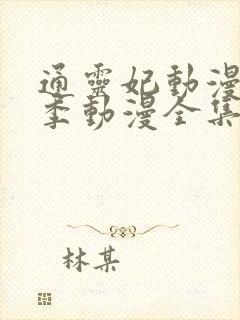 通靈妃動漫
季動漫全集
林某